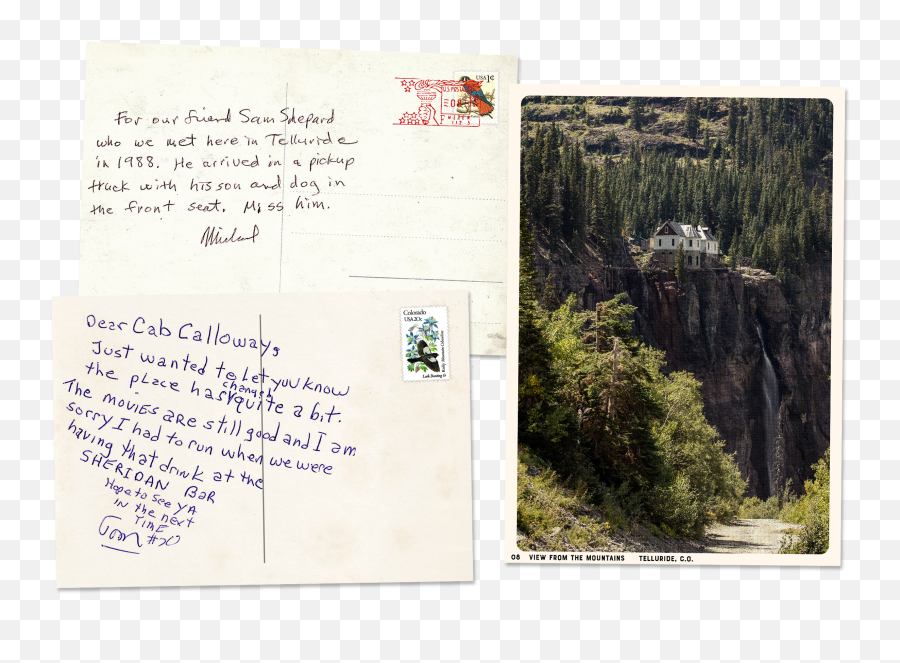 For our friend Sam Shepard
who we met here in Telluride
in 1988. He arrived in a pickup
truck with his son and dog in
the front seat. Miss him.
Michael
USA 1¢
U.S. POSTAGE
Dear Cab Calloway,
Just wanted to let you know
the place has changed quite a bit.
The movies are still good and I am
sorry I had to run when we were
having that drink at the
SHERIDAN BAR
Hope to see YA
IN the next
TIME
Tom #20
Colorado
USA 20c
Lark Bunting &
08 VIEW FROM THE MOUNTAINS TELLURIDE, C.O.